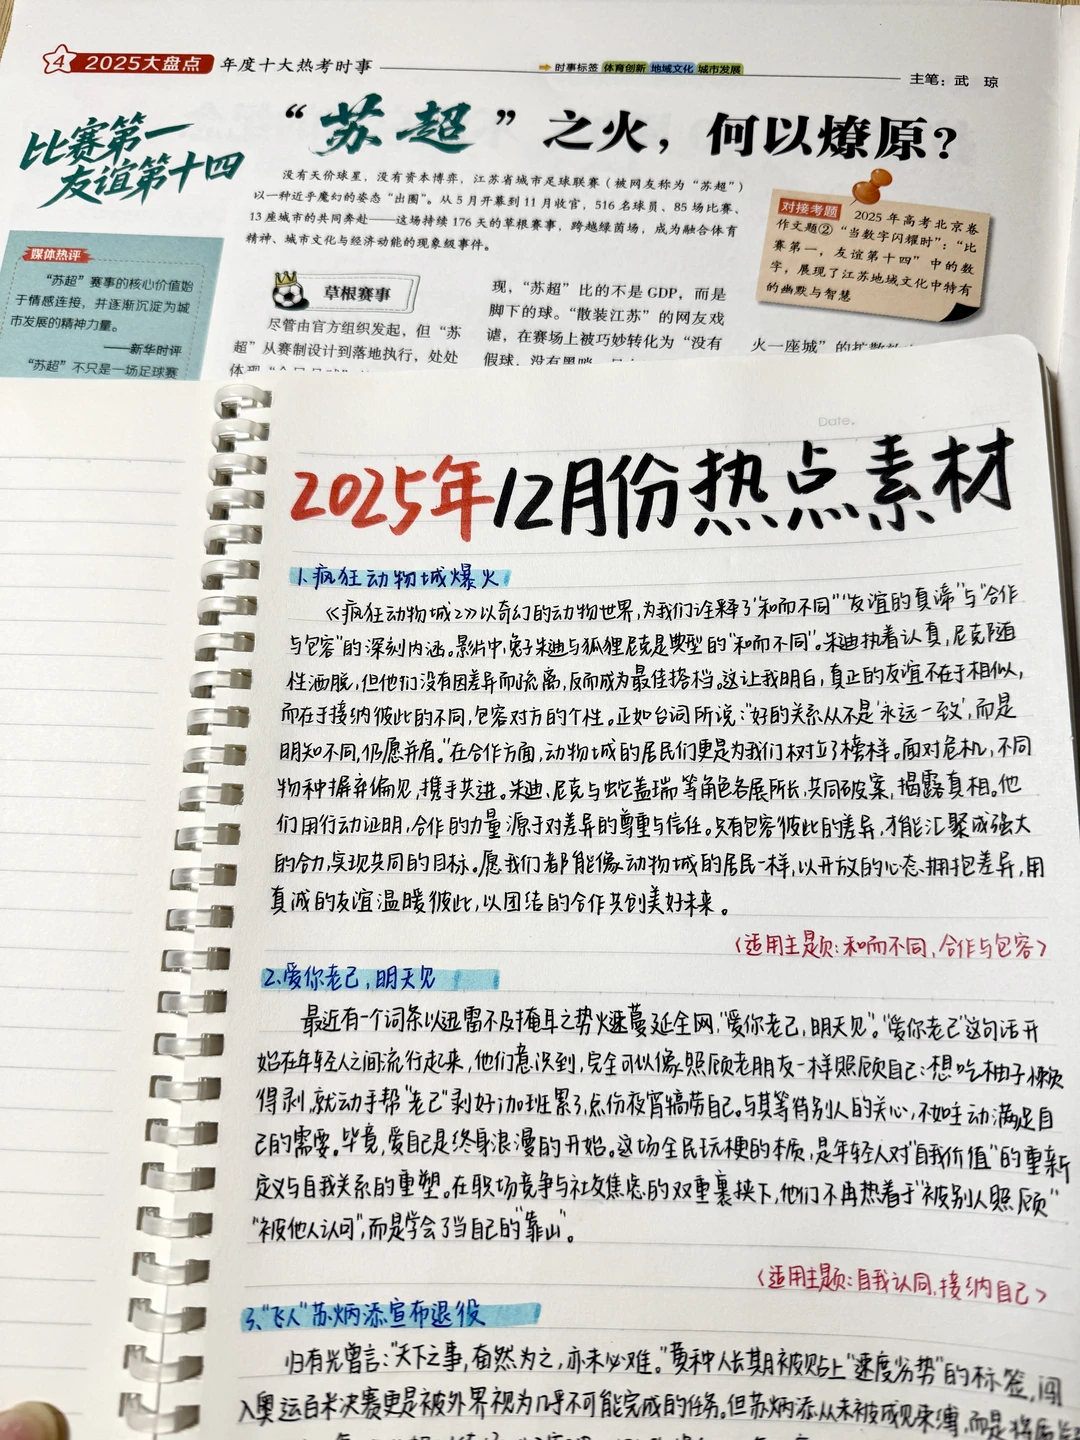 4 2025大盘点 年度十大热考时事
时事标签 体育创新 地域文化 城市发展
主笔：武 琼
比赛第一
友谊第十四
“苏超”之火，何以燎原？
没有天价球星，没有资本博弈，江苏省城市足球联赛（被网友称为“苏超”）
以一种近乎魔幻的姿态“出圈”。从5月开幕到11月收官，516名球员、85场比赛、
13座城市的共同奔赴——这场持续176天的草根赛事，跨越绿茵场，成为融合体育
精神、城市文化与经济动能的现象级事件。
对接考题 2025年高考北京卷
作文题②“当数字闪耀时”：“比
赛第一，友谊第十四”中的数
字，展现了江苏地域文化中特有
的幽默与智慧
媒体热评
“苏超”赛事的核心价值始
于情感连接，并逐渐沉淀为城
市发展的精神力量。
——新华时评
“苏超”不只是一场足球赛
草根赛事
尽管由官方组织发起，但“苏
超”从赛制设计到落地执行，处处
现，“苏超”比的不是GDP，而是
脚下的球。“散装江苏”的网友戏
谑，在赛场上被巧妙转化为“没有
假球，没有黑哨
火一座城”的扩散
Date.
2025年12月份热点素材
1.疯狂动物城爆火
《疯狂动物城2》以奇幻的动物世界，为我们诠释了“和而不同”“友谊的真谛”与“合作
与包容”的深刻内涵。影片中，兔子朱迪与狐狸尼克是典型的“和而不同”。朱迪执着认真，尼克随
性洒脱，但他们没有因差异而疏离，反而成为最佳搭档。这让我明白，真正的友谊不在于相似，
而在于接纳彼此的不同，包容对方的个性。正如台词所说：“好的关系从不是‘永远一致’，而是
明知不同，仍愿并肩。”在合作方面，动物城的居民们更是为我们树立了榜样。面对危机，不同
物种摒弃偏见，携手共进。朱迪、尼克与蛇盖瑞等角色各展所长，共同破案，揭露真相。他
们用行动证明，合作的力量源于对差异的尊重与信任。只有包容彼此的差异，才能汇聚成强大
的合力，实现共同的目标。愿我们都能像动物城的居民一样，以开放的心态拥抱差异，用
真诚的友谊温暖彼此，以团结的合作共创美好未来。
〈适用主题：和而不同，合作与包容〉
2.爱你老己，明天见
最近有一个词条以迅雷不及掩耳之势火速蔓延全网，“爱你老己，明天见”。“爱你老己”这句话开
始在年轻人之间流行起来，他们意识到，完全可以像照顾老朋友一样照顾自己：想吃柚子懒
得剥，就动手帮“老己”剥好；加班累了，点份夜宵犒劳自己。与其等待别人的关心，不如主动满足自
己的需要。毕竟，爱自己是终身浪漫的开始。这场全民玩梗的本质，是年轻人对“自我价值”的重新
定义与自我关系的重塑。在职场竞争与社交焦虑的双重裹挟下，他们不再热着于“被别人照顾”
“被他人认可”，而是学会了当自己的“靠山”。
〈适用主题：自我认同，接纳自己〉
3.“飞人”苏炳添宣布退役
归有光曾言：“天下之事，奋然为之，亦未必难。”黄种人长期被贴上“速度劣势”的标签，闯
入奥运百米决赛更是被外界视为几乎不可能完成的任务。但苏炳添从未被成见束缚，而是